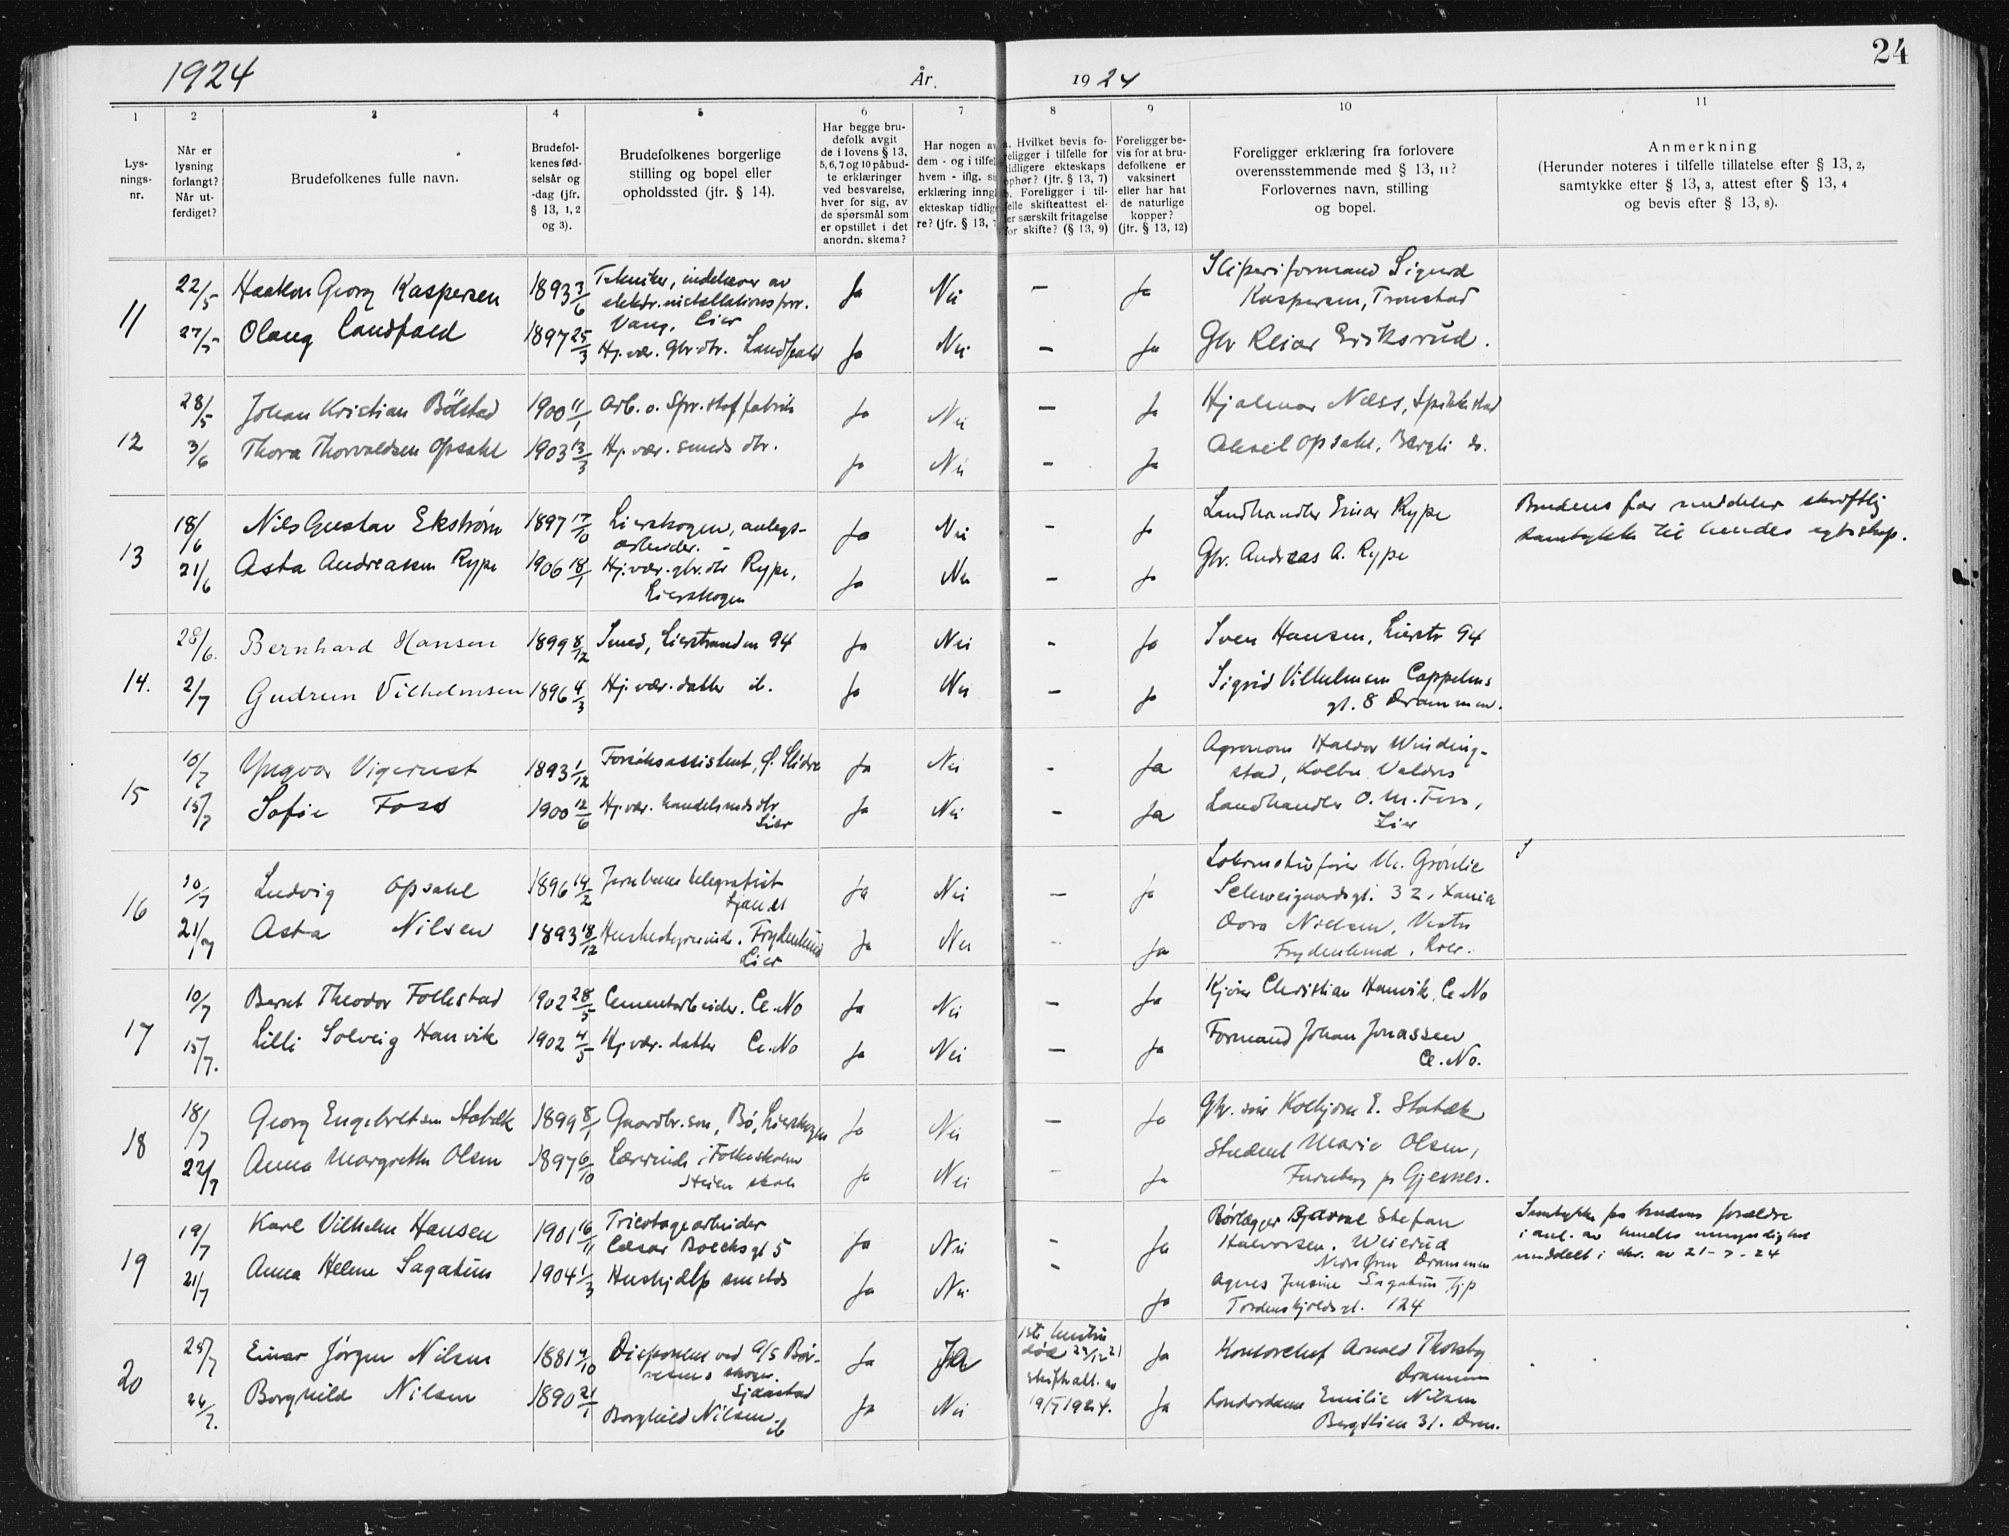 1924 År. 1924 24
1 2 3 4 5 6 7 8 9 10 11
Lysnings-nr.
Når er lysning forlangt? Når utferdiget?
Brudefolkenes fulle navn.
Brudefolkenes fødselsår og -dag (jfr. § 13, 1, 2 og 3).
Brudefolkenes borgerlige stilling og bopel eller opholdssted (jfr. § 14).
Har begge brudefolk avgit de i lovens § 13, 5, 6, 7 og 10 påbudte erklæringer ved besvarelse, hver for sig, av de spørsmål som er opstillet i det anordn. skema?
Har nogen av dem - og i tilfelle hvem - iflg. sin erklæring inngått ekteskap tidligere? (jfr. § 13, 7
a. Hvilket bevis foreligger i tilfelle for tidligere ekteskaps ophør? (jfr. § 13, 7) b. Foreligger i tilfelle skifteattest eller særskilt fritagelse for skifte? (§ 13, 9)
Foreligger bevis for at brudefolkene er vaksinert eller har hat de naturlige kopper? (jfr. § 13, 12)
Foreligger erklæring fra forlovere overensstemmende med § 13, 11? Forlovernes navn, stilling og bopel.
Anmerkning (Herunder noteres i tilfelle tillatelse efter § 13, 2, samtykke efter § 13, 3, attest efter § 13, 4 og bevis efter § 13, 8).
11 22/5 Haakon Georg Kaspersen 1893 3/6 Tekniker, indehaver av elektr. installationsforr. Vang, Lier Ja Nei – Ja Sliperiformand Sigurd Kaspersen, Tronstad
27/5 Olaug Landfald 1897 25/3 Hj. vær. Gbr. dtr. Landfald Ja Nei – Ja Gbr Reiar Eriksrud.
12 28/5 Johan Kristian Bölstad 1900 11/1 Arb. o. Spr. stoffabrik Ja Nei – Ja Hjalmar Næss, Spikkestad
3/6 Thora Thorvaldsen Opsahl 1903 13/3 Hj. vær. smeds dtr. Ja Nei – Ja Aksel Opsahl, Bergli
13 18/6 Nils Gustav Ekstrøm 1897 17/10 Lierskogen, anlegsarbeider. Ja Nei - Ja Landhandler Einar Rype Brudens far meddeler skriftlig samtykke til hendes egteskap.
21/6 Asta Andreassen Rype 1906 18/1 Hj. vær. gbr. dtr Rype, Lierskogen Ja Nei – Ja Gbr. Andreas A. Rype
14. 28/6. Bernhard Hansen 1899 8/12 Smed, Lierstranden 94 Ja Nei - Ja Sven Hansen, Lierstr 94
2/7 Gudrun Vilhelmsen 1896 4/3 Hj. vær. datter ib. Ja Nei – Ja Sigrid Vilhelmsen Cappelens gt. 8 Drammen.
15 10/7 Yngvar Vigerust 1893 1/12 Forsøksassistent, Ø. Slidre Ja Nei - Ja Agronom Haldor Windingstad, Kolbu Valdres
15/7 Sofie Foss 1900 12/6 Hj. vær. handelsmds dtr Lier Ja Nei – Ja Landhandler O. M. Foss, Lier
16 10/7 Ludvig Opsahl 1896 14/2 Jernbane telegrafist Ja Nei – Ja Lokomotivfører M. Grönlie Schweigaardsgt. 32, Xania
21/7 Asta Nilsen 1893 18/12 Husbestyrerinde, Frydenlund Lier Ja Nei - Ja Dora Nielsen, Vestre Frydenlund, Lier.
17 10/7 Bernt Theodor Follestad 1902 28/5 Cementarbeider. Ce. No Ja Nei – Ja Kjører Christian Hanvik, Ce. No
15/7. Lilli Solveig Hanvik 1902 4/5 Hj. vær. datter Ce. No Ja Nei – Ja Formand Johan Jonassen Ce. No.
18 18/7 Georg Engebretsen Stabæk 1899 8/1 Gaardbr. søn, Bø, Lierskogen Ja Nei – Ja Gbr. søn Kolbjørn E. Stabæk
22/7 Anna Margrethe Olsen 1897 6/10 Lærerinde i Folkeskolen skole Ja Nei - Ja Student Marie Olsen, Furuberg pr Gjesnes.
19 19/7 Karl Vilhelm Hansen 1901 16/11 Tricotagearbeider Cæsar Boecks gt 5 Ja Nei - Ja Børlægger Bjarne Stefan Halvorsen, Weierud Nedre Øren Drammen Samtykke fra brudens forældre i anl. av hendes umyndighet meddelt i skr. av 21-7-24
21/7 Anna Helene Sagatun 1904 1/3 Hushjælp smsteds Ja Nei - Ja Agnes Jensine Sagatun Tordenskjoldsgt. 124
20 25/7 Einar Jørgen Nilsen 1881 4/10 Disponent ved A/S Børresens skog. Gjellestad Ja Ja 1ste hustru død 29/12 21 skifteatt. av 19/5 1924. Ja Kontorchef Arnold Thoresby Drammen
26/7. Borghild Nilsen 1890 21/1 Borghild Nilsen. ib Ja Nei Ja Kontordame Emilie Nilsen Bergtlien 31. Dram.